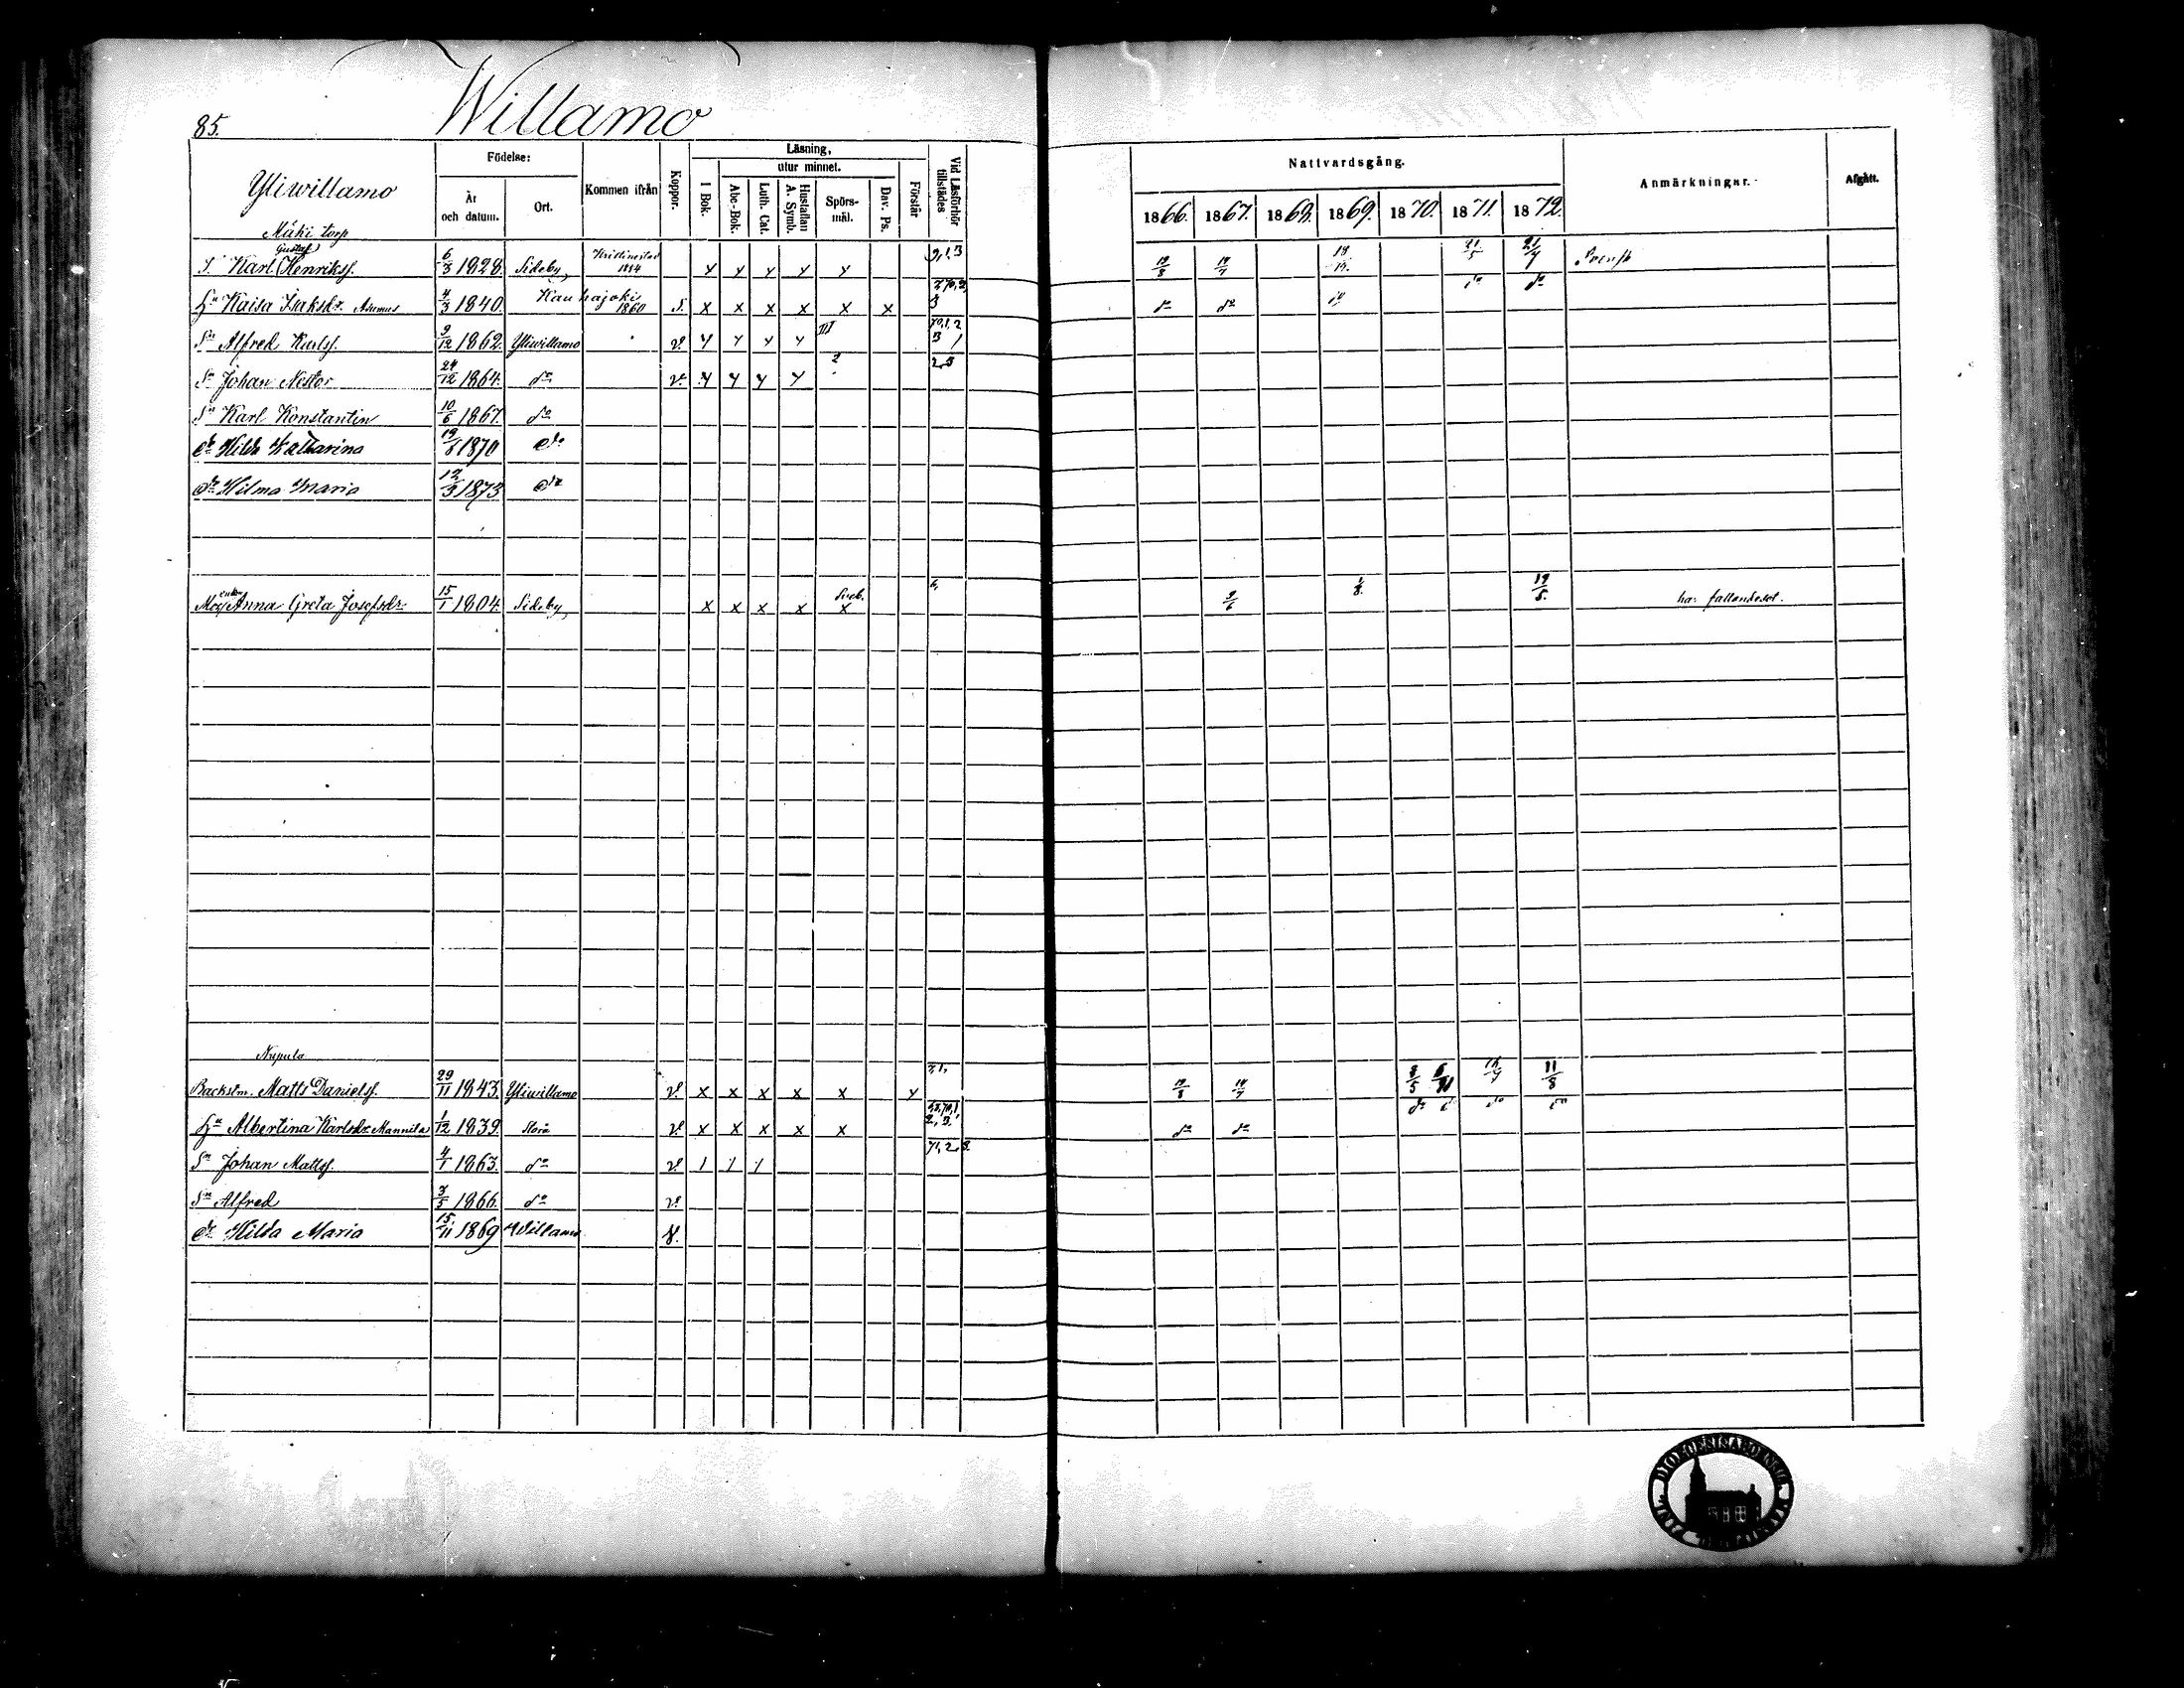 85.
Willamo
Yliwillamo
Födelse:
År och datum.
Ort.
Kommen ifrån
Koppor.
Läsning,
utur minnet.
I Bok.
Abc-Bok.
Luth. Cat.
Hustaflan A. Symb.
Spörs-mål.
Dav. Ps.
Förstår
Vid Läsförhör tillstädes
Nattvardsgång.
1866. 1867. 1868. 1869. 1870. 1871. 1872.
Anmärkningar.
Afgått.
Mäki torp
Gustaf
T. Karl Henrikss. 6/3 1828. Sideby, Kristinestad y y y y y 9,1,3 19/8 19/7 21/5 21/4
Hu Kaisa Isaksdr. Asumus 4/3 1840. Kauhajoki 1860 S. x x x x x x do do do do do
Sn Alfred Karlss. 9/12 1862. Yliwillamo v. y y y y III 70,1,2 3
Sn Johan Nestor 24/12 1864. do v. y y y y 2 2,3
Sn Karl Konstantin 10/6 1867. do
dr Hilda Katharina 19/8 1870 do
dr Hilma Maria 12/3 1873 do
enka
Anna Greta Josefsdr. 15/1 1804. Sideby, x x x x x 9/6 1/8 19/5 har fallandesot.
Nupula
Backstm. Matts Danielss. 29/11 1843. Yliwillamo v. x x x x x y 19/8 14/7 8/5 6/11 11/8
Hu Albertina Karlsdr. Mannila 1/12 1839. Storå v. x x x x x 2,3 do do do do do
Sn Johan Matts. 4/1 1863. do v. 1 1 y 71,2,3.
Sn Alfred 3/5 1866. do v.
dr Hilda Maria 15/11 1869 Willamo v.